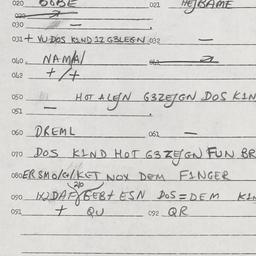 020 BOBE 021 HEJBAME
030 —
031 + VU DOS KIND IZ G3LEGN 032 —
040. NAMA/
042 +/+
050 HOT ALEJN G3ZEJGN DOS KIN
051 —
060 DREML 061 —
070 DOS KIND HOT G3ZEJGN FUN BR
080 ER SMO/G/KET NOX DEM FINGER
090 GEBT ESN DOS=DEM KIN
091 + QU 092 QR